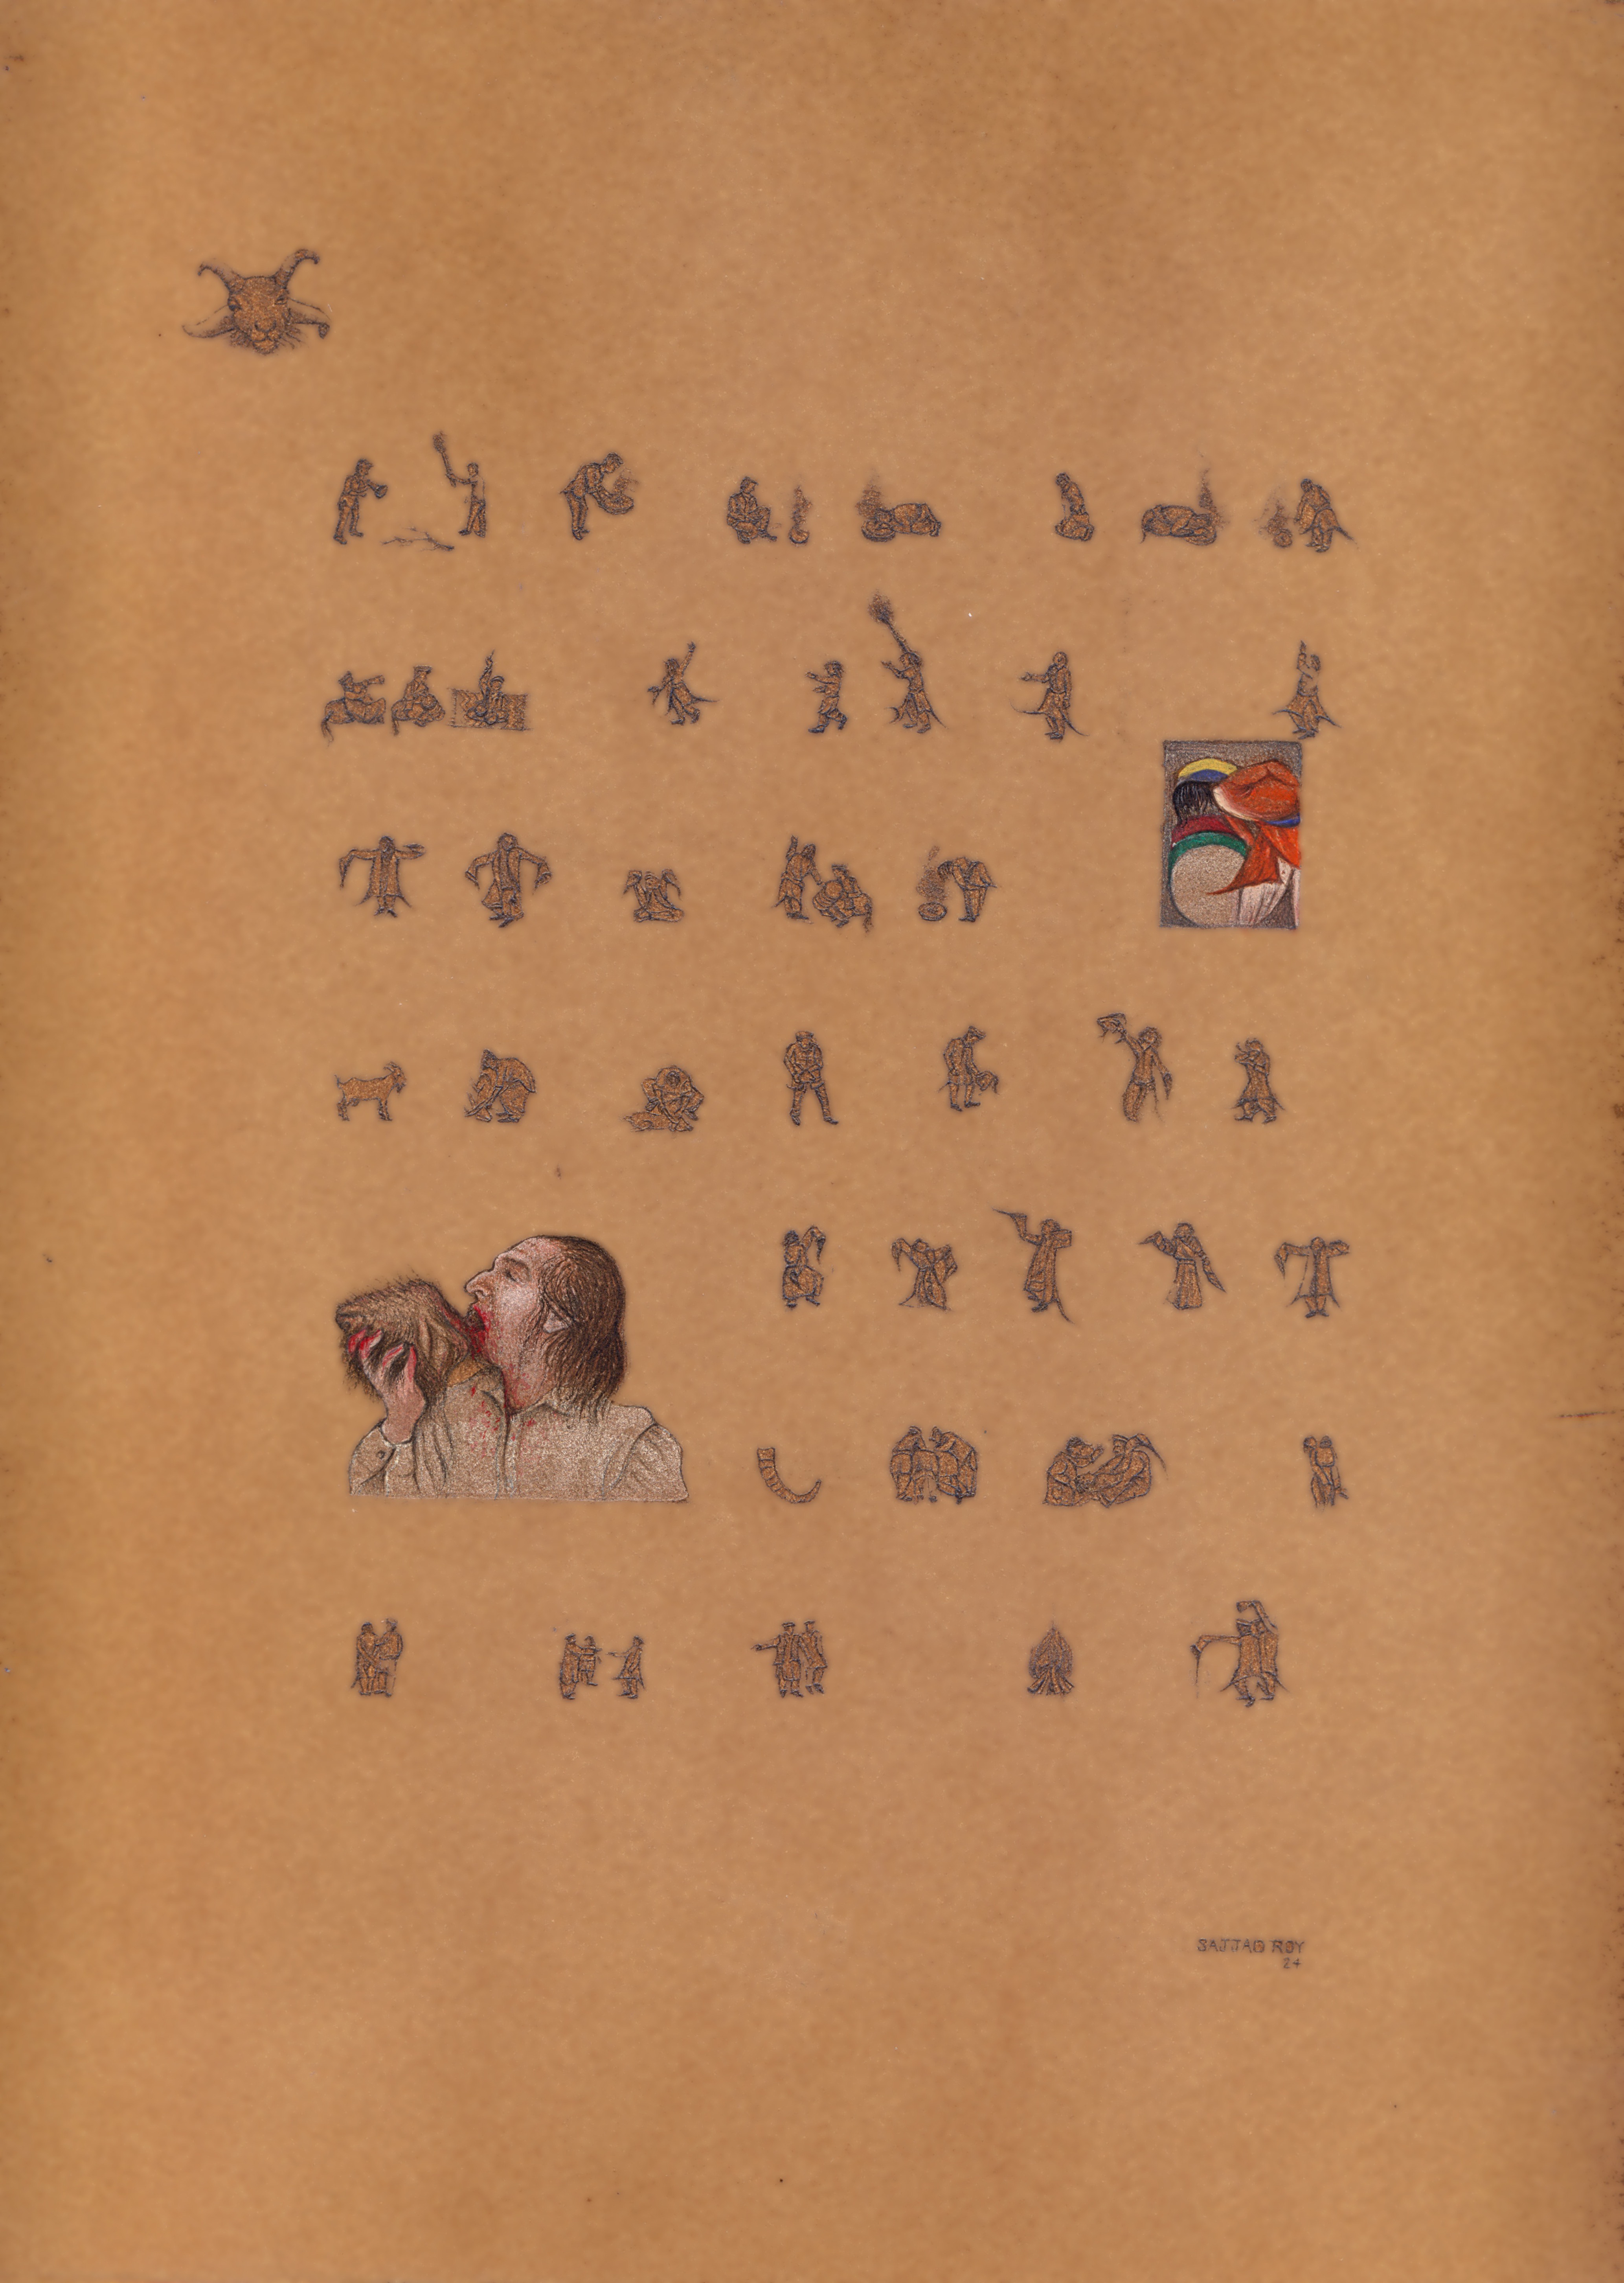 SAJJAD ROY
24